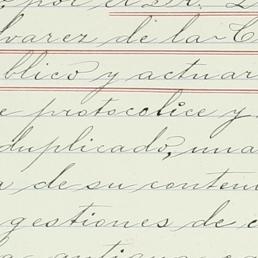 por el Sr. D
lvarez de la C
blico y actuar
e protocolice y
duplicado, una
a de su conten
gestiones de c